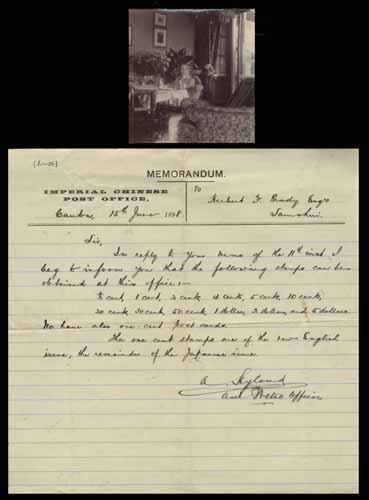 [L—25]
MEMORANDUM.
IMPERIAL CHINESE
POST OFFICE.
Canton, 15th June 1898
To
Herbert F. Brady Esqre
Samshui.
Sir,
In reply to your memo of the 11th inst. I
beg to inform you that the following stamps can be
obtained at this office:—
½ cent, 1 cent, 2 cents, 4 cents, 5 cents, 10 cents,
20 cents, 30 cents, 50 cents, 1 dollar, 2 dollars and 5 dollars.
We have also one-cent post cards.
The one cent stamps are of the new English
issue, the remainder of the Japanese issue.
A.
Asst Postal Officer